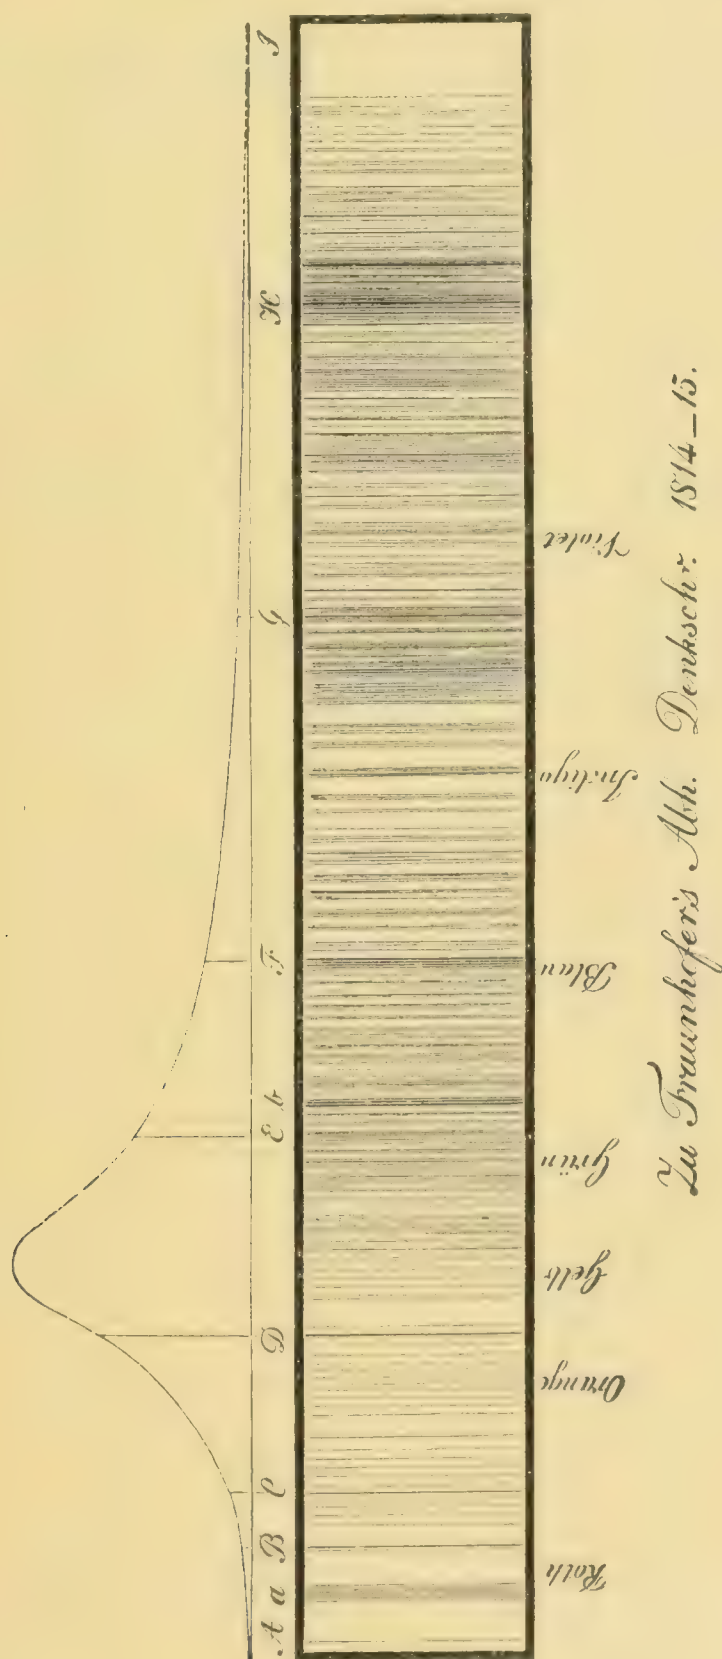 A a B C D E b F G H I
Roth Orange Gelb Grün Blau Indigo Violet
Zu Fraunhofer's Abh. Denkschr. 1814_15.